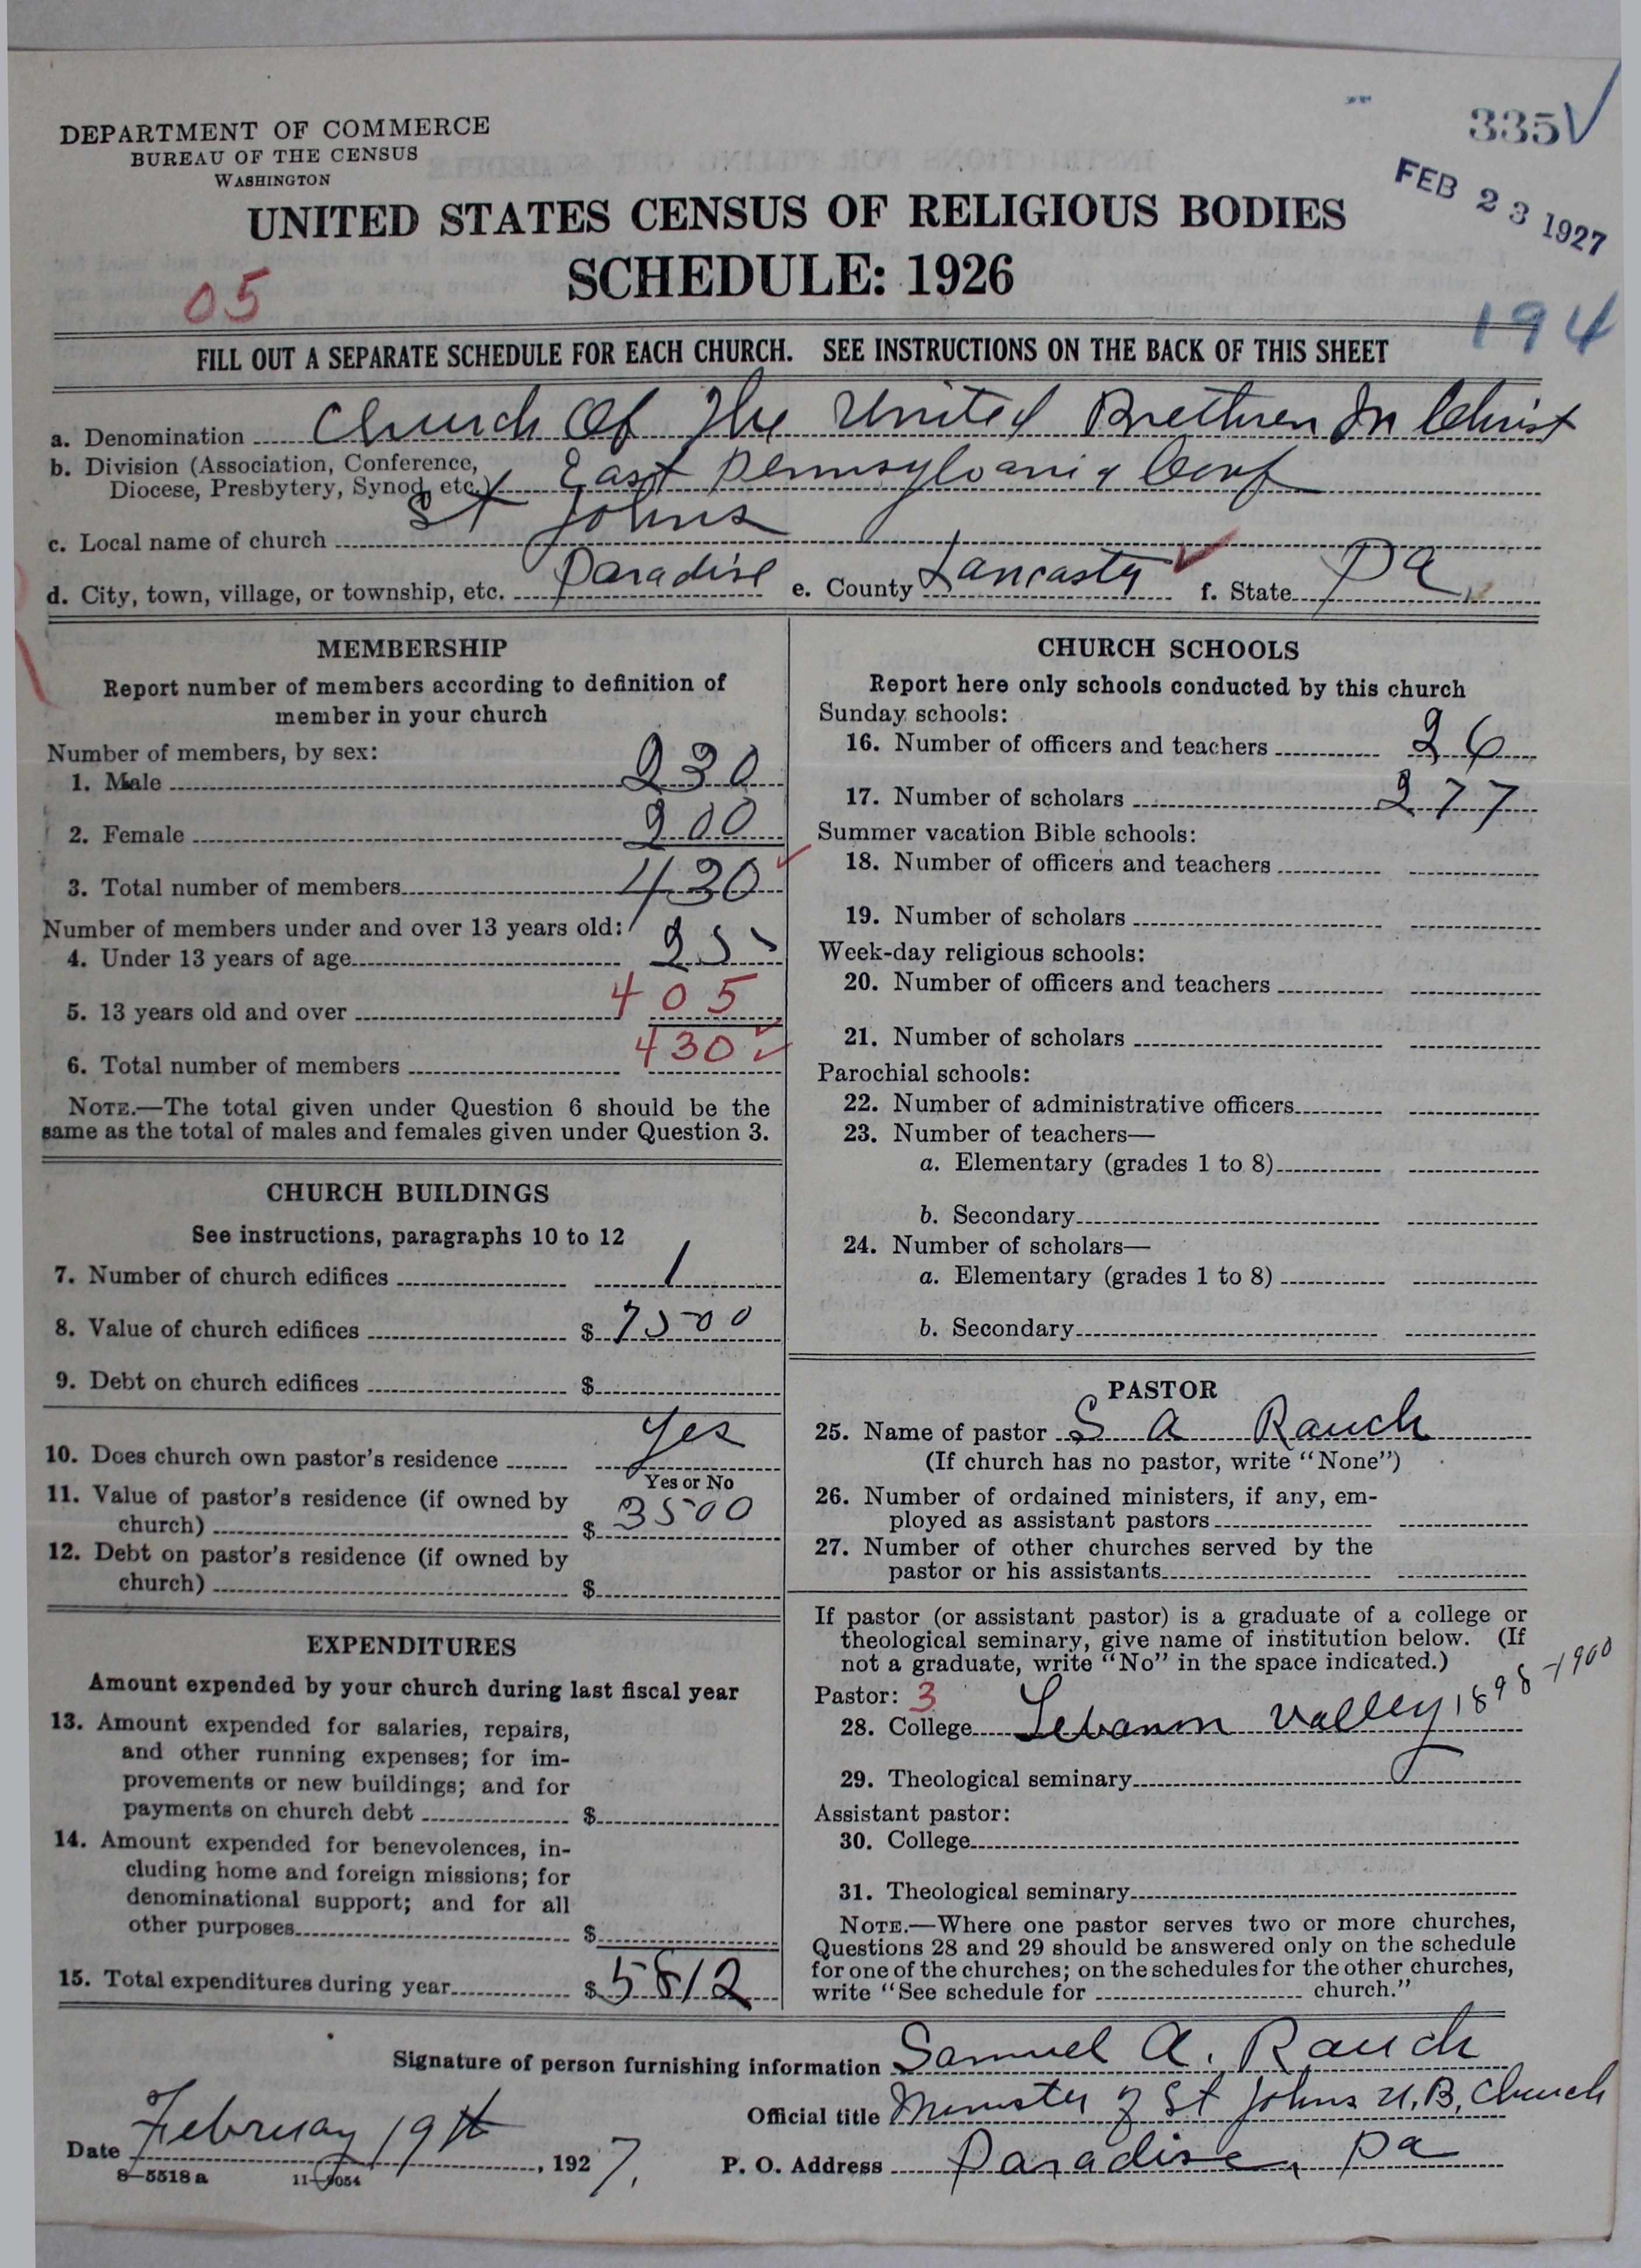 335
FEB 23 1927
DEPARTMENT OF COMMERCE
BUREAU OF THE CENSUS
WASHINGTON
UNITED STATES CENSUS OF RELIGIOUS BODIES
SCHEDULE: 1926
05
194
FILL OUT A SEPARATE SCHEDULE FOR EACH CHURCH. SEE INSTRUCTIONS ON THE BACK OF THIS SHEET
a. Denomination Church Of The United Brethren In Christ
b. Division (Association, Conference,
Diocese, Presbytery, Synod, etc.) East Pennsylvania Conf
c. Local name of church St Johns
d. City, town, village, or township, etc. Paradise e. County Lancaster f. State Pa
MEMBERSHIP
Report number of members according to definition of
member in your church
Number of members, by sex:
1. Male 230
2. Female 200
3. Total number of members 430
Number of members under and over 13 years old:
4. Under 13 years of age 25
5. 13 years old and over 405
6. Total number of members 430
NOTE.—The total given under Question 6 should be the
same as the total of males and females given under Question 3.
CHURCH BUILDINGS
See instructions, paragraphs 10 to 12
7. Number of church edifices 1
8. Value of church edifices $ 7500
9. Debt on church edifices $
10. Does church own pastor's residence Yes
Yes or No
11. Value of pastor's residence (if owned by
church) $ 3500
12. Debt on pastor's residence (if owned by
church) $
EXPENDITURES
Amount expended by your church during last fiscal year
13. Amount expended for salaries, repairs,
and other running expenses; for im-
provements or new buildings; and for
payments on church debt $
14. Amount expended for benevolences, in-
cluding home and foreign missions; for
denominational support; and for all
other purposes $
15. Total expenditures during year $ 5812
CHURCH SCHOOLS
Report here only schools conducted by this church
Sunday schools:
16. Number of officers and teachers 26
17. Number of scholars 277
Summer vacation Bible schools:
18. Number of officers and teachers
19. Number of scholars
Week-day religious schools:
20. Number of officers and teachers
21. Number of scholars
Parochial schools:
22. Number of administrative officers
23. Number of teachers—
a. Elementary (grades 1 to 8)
b. Secondary
24. Number of scholars—
a. Elementary (grades 1 to 8)
b. Secondary
PASTOR
25. Name of pastor S A Rauch
(If church has no pastor, write "None")
26. Number of ordained ministers, if any, em-
ployed as assistant pastors
27. Number of other churches served by the
pastor or his assistants
If pastor (or assistant pastor) is a graduate of a college or
theological seminary, give name of institution below. (If
not a graduate, write "No" in the space indicated.)
Pastor: 3
28. College Lebanon Valley 1898-1900
29. Theological seminary
Assistant pastor:
30. College
31. Theological seminary
NOTE.—Where one pastor serves two or more churches,
Questions 28 and 29 should be answered only on the schedule
for one of the churches; on the schedules for the other churches,
write "See schedule for church."
Signature of person furnishing information Samuel A. Rauch
Official title Minister of St Johns U.B. Church
Date February 19th, 1927.
P. O. Address Paradise, Pa
8—5518a 11—9054